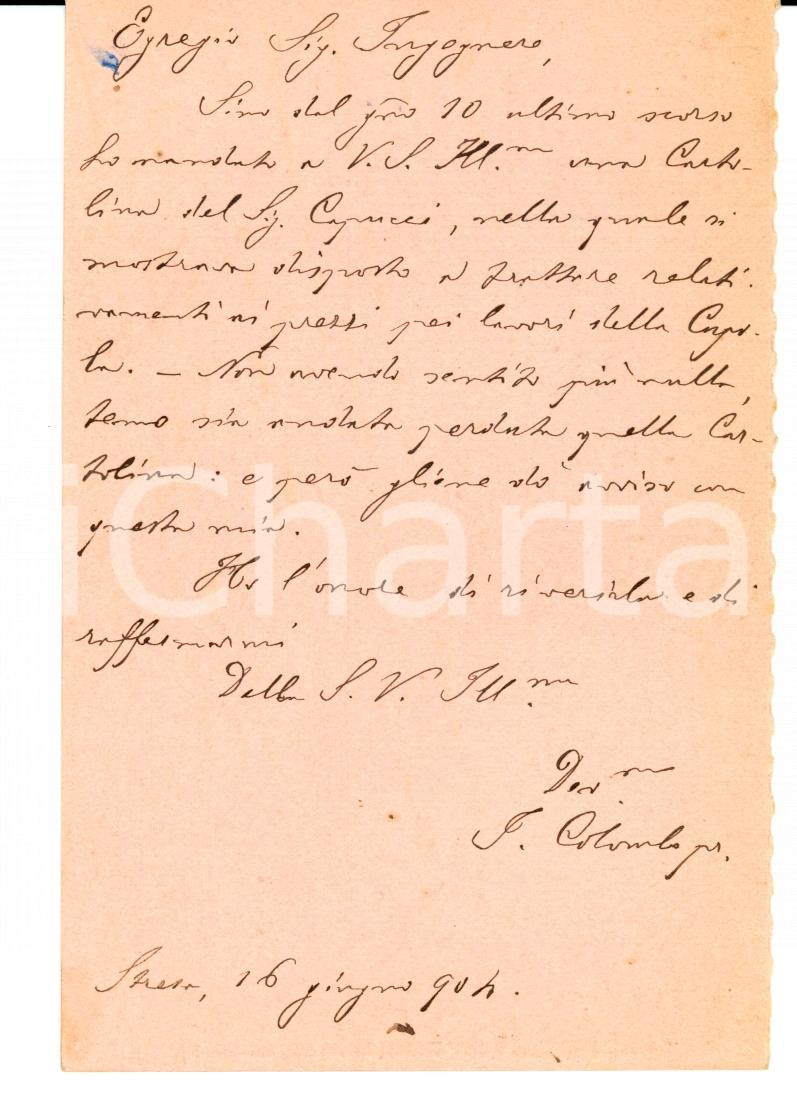 Egregio Sig. Ingegnere,
Sino dal gno 10 ultimo scorso
ho mandato a V. S. Ill.ma una Carto-
lina del Sig. Capucci, nella quale si
mostrava disposto a trattare relati-
vamenti ai prezzi pei lavori della Cupo-
la. – Non avendo sentito più nulla,
temo sia andata perduta quella Car-
tolina: e però gliene dò avviso con
questa mia.
Ho l'onore di riverirla e di
raffermarmi
Della S. V. Ill.ma
Dev.mo
T. Colombo pr.
Stresa, 16 giugno 904.
iCharta